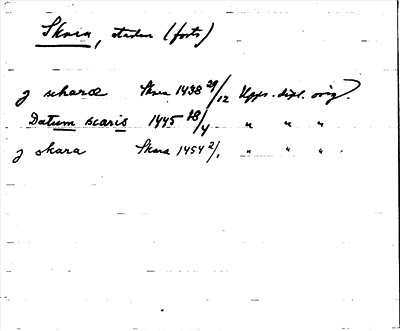 Skara, staden (forts)
j scharæ Skara 1438 29/12 Upps. dipl. orig.
Datum scaris 1445 18/4 " " "
j skara Skara 1454 2/1 " " " .